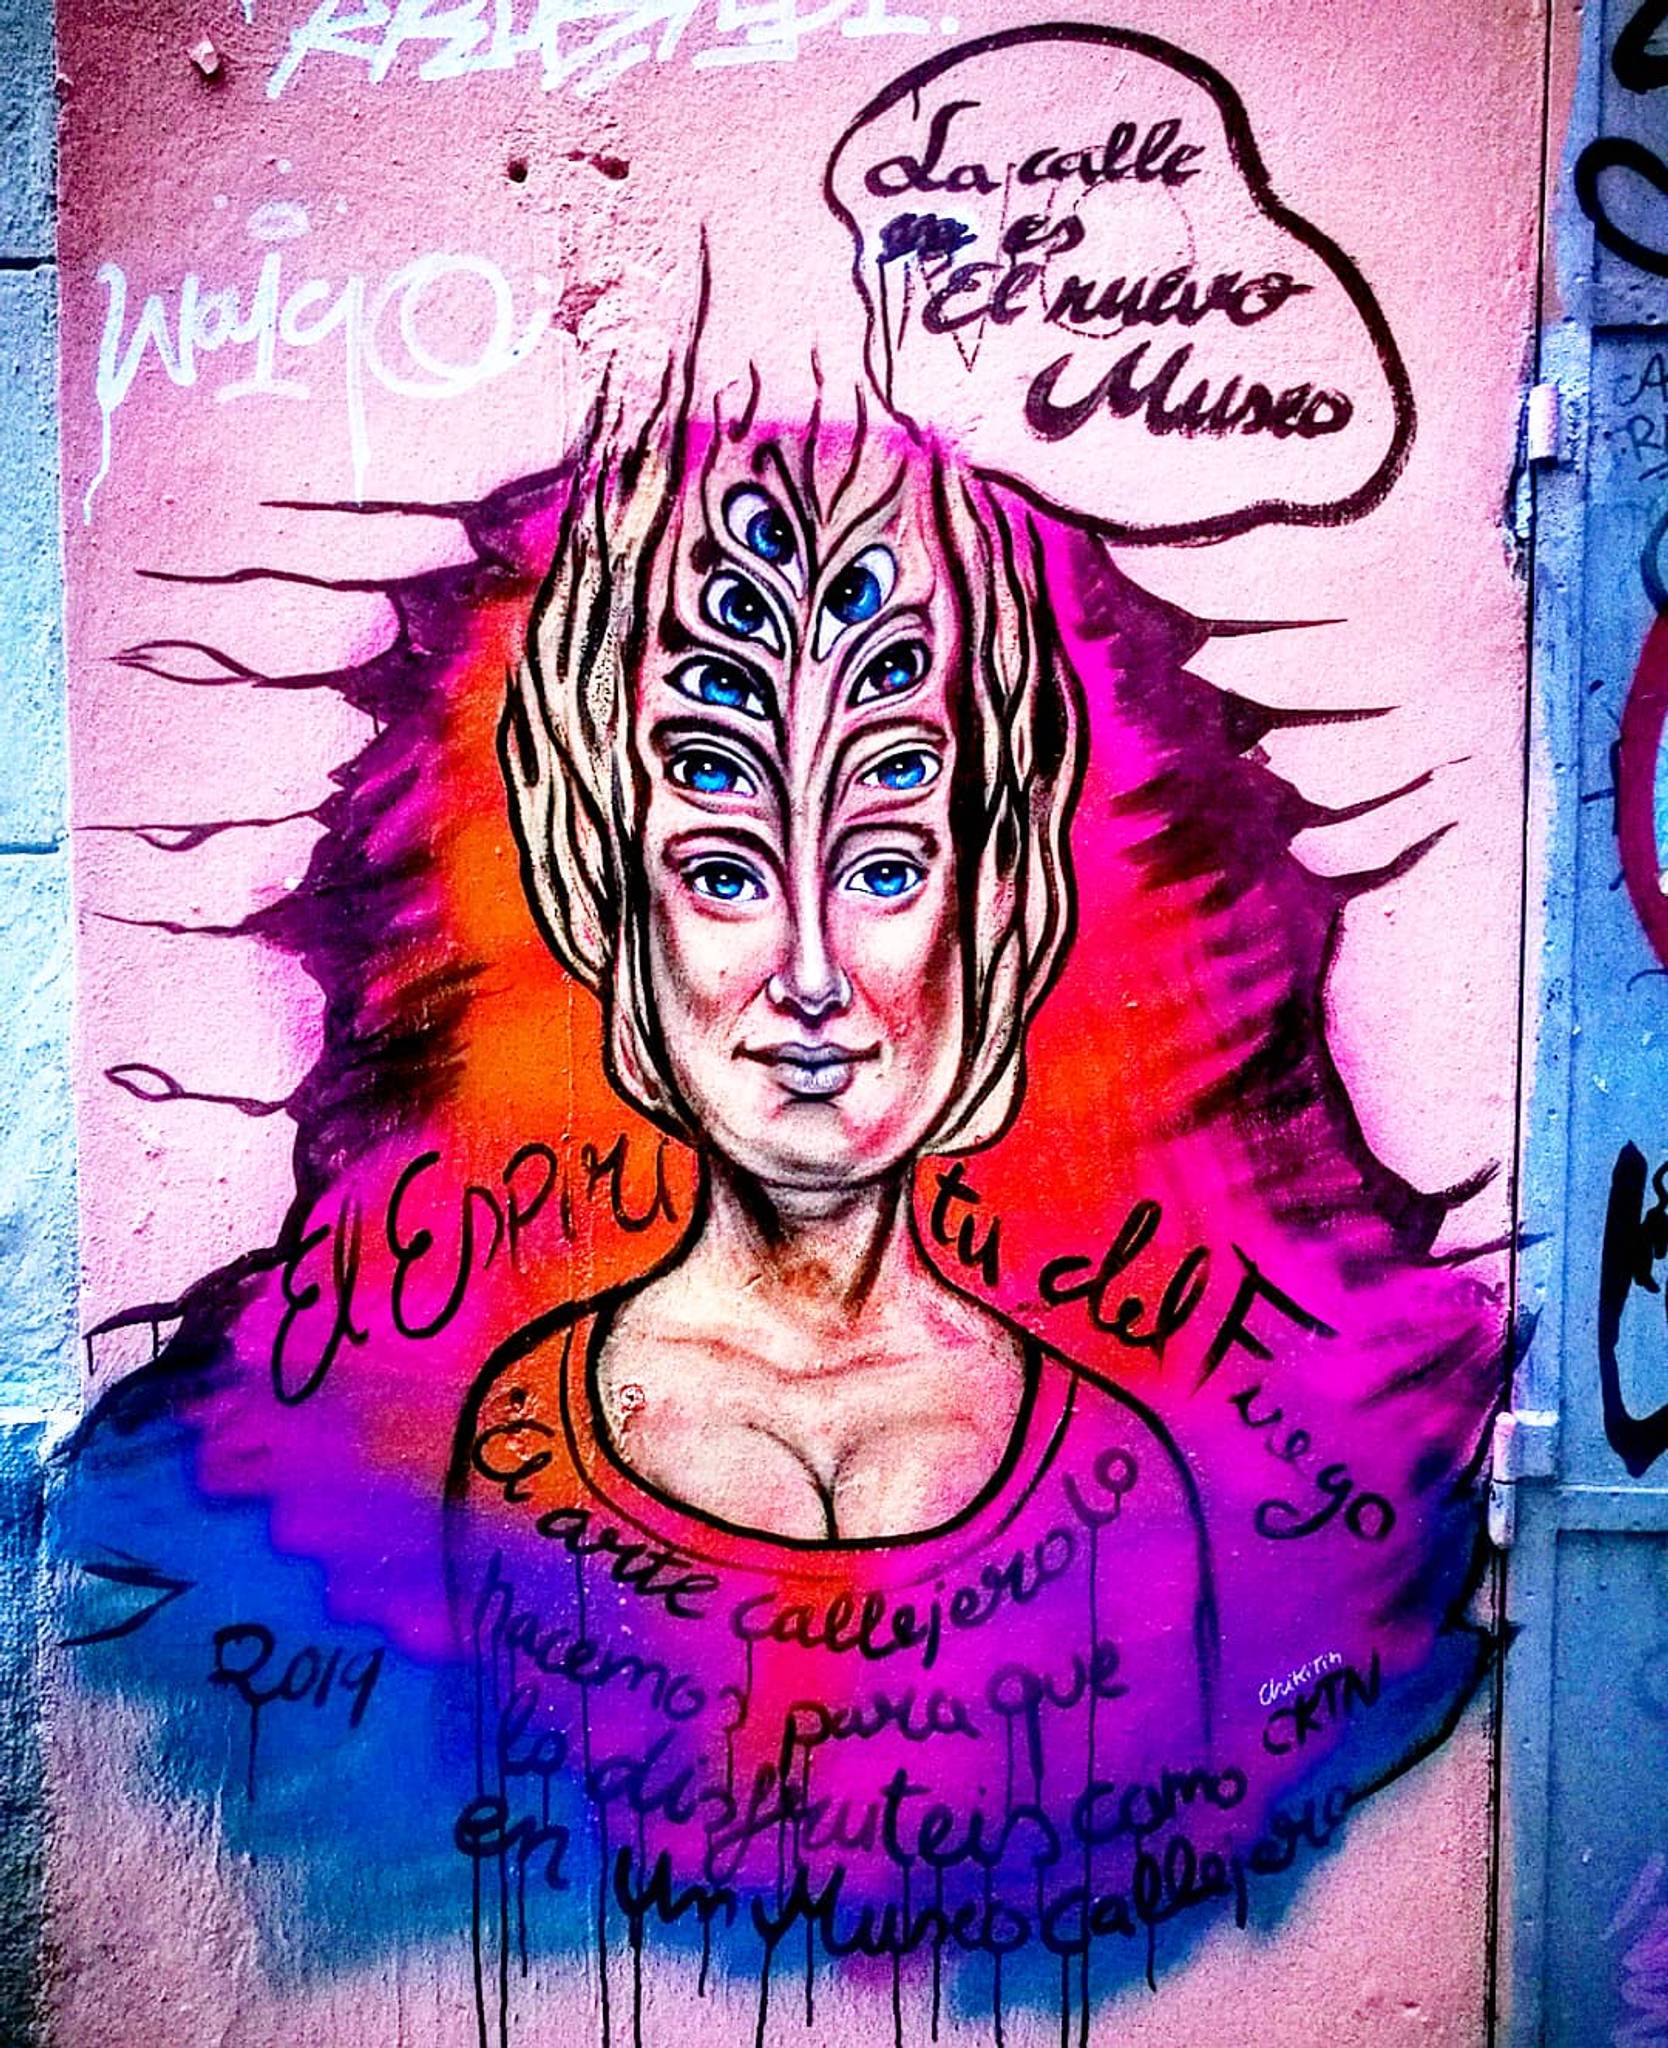 La calle
es
El nuevo
Museo
El Espiritu del Fuego
arte callejero lo
hacemos para que
lo disfruteis como
en un Museo callejero
2019
Chikitin
CKTN